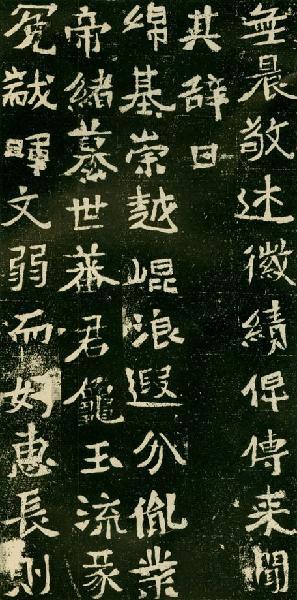 無晨敬述徽績俾傳来聞
其辞曰
綿基崇越崐浪遐分胤業
帝緒世蕃君龜玉流彖
冕黻暉文弱而好惠長則